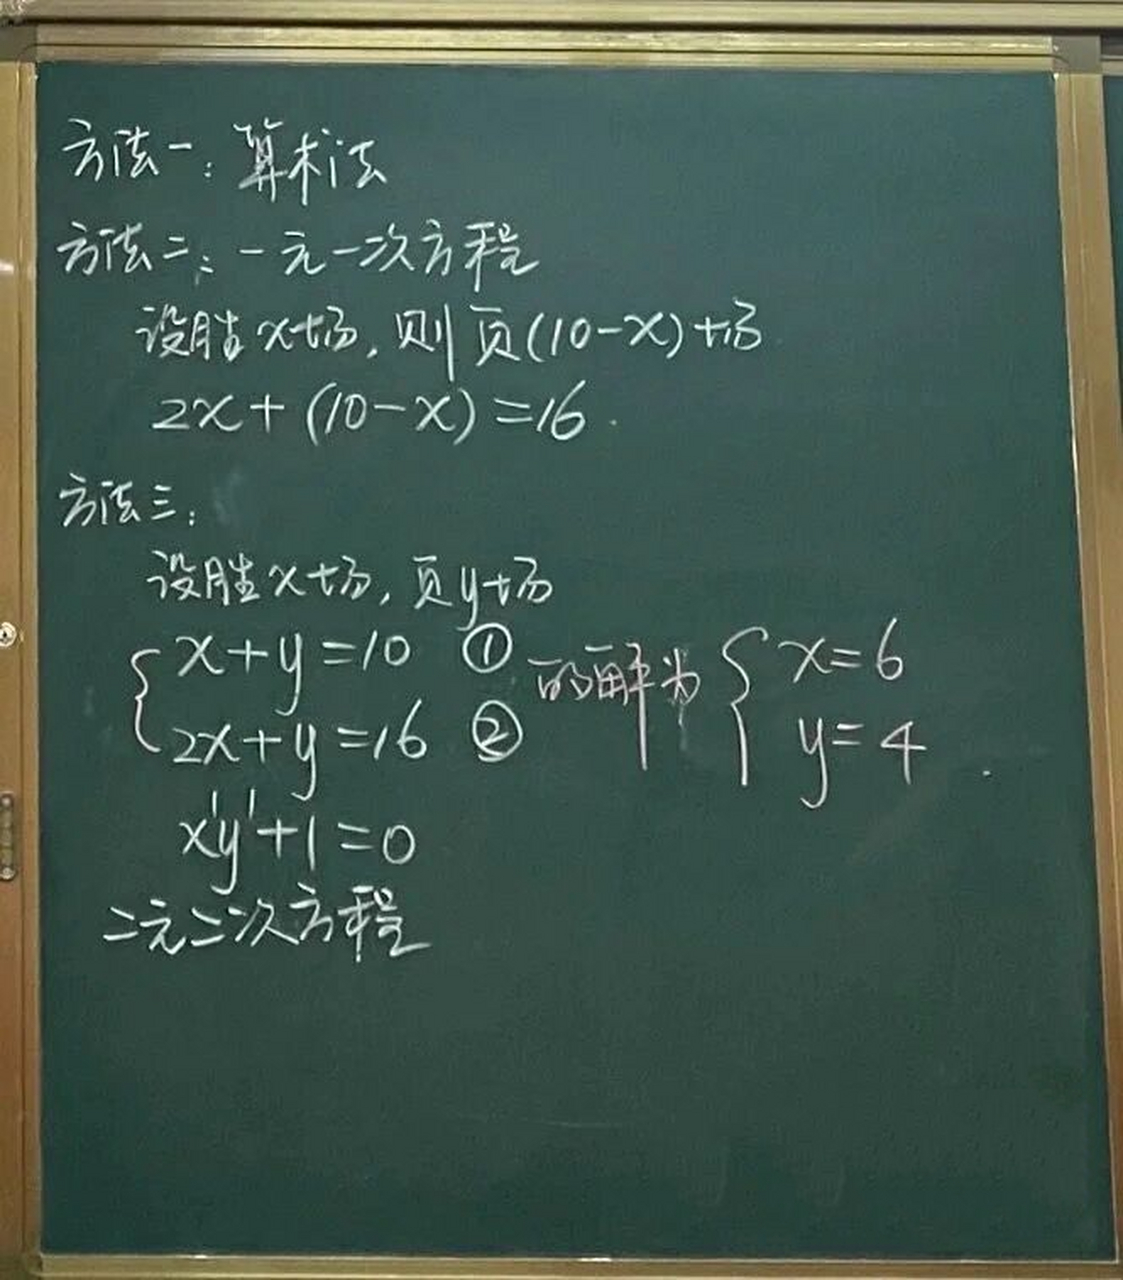 方法一：算术法
方法二：一元一次方程
设胜x场，则负(10-x)场
2x+(10-x)=16.
方法三：
设胜x场，负y场
{x+y=10 ①
2x+y=16 ②
的解为
{x=6
y=4.
x¹y¹+1=0
二元二次方程